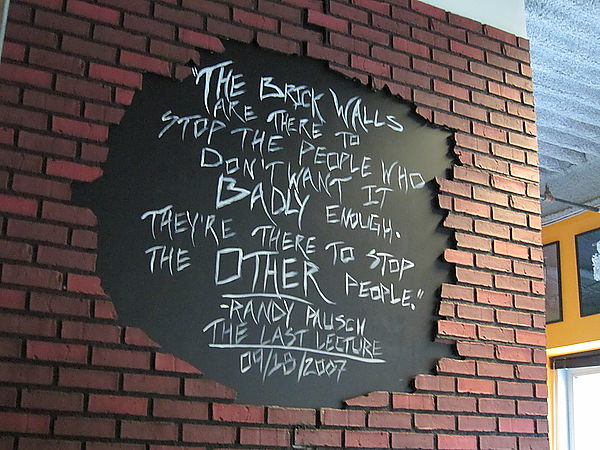 "THE BRICK WALLS
ARE THERE TO
STOP THE PEOPLE WHO
DON'T WANT IT
BADLY ENOUGH.
THEY'RE THERE TO STOP
THE OTHER PEOPLE."
-RANDY PAUSCH
THE LAST LECTURE
09/18/2007